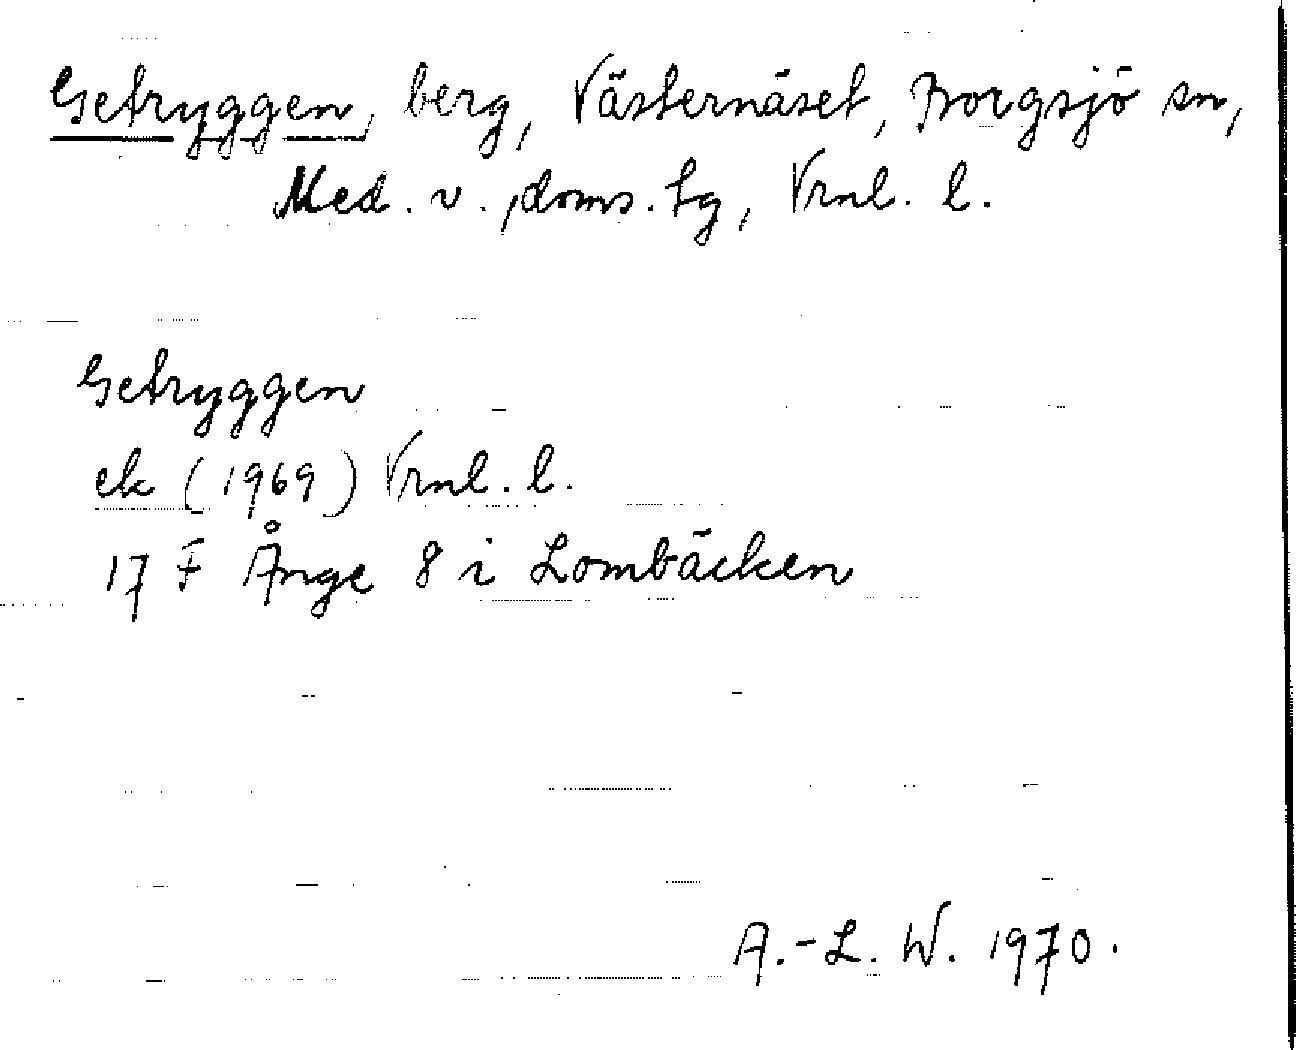 Getryggen, berg, Västernäset, Borgsjö sn,
Med. v., doms. tg, Vrnl. l.
Getryggen
ek (1969) Vrnl. l.
17 F Ånge 8 i Lombäcken
A.-L. W. 1970.